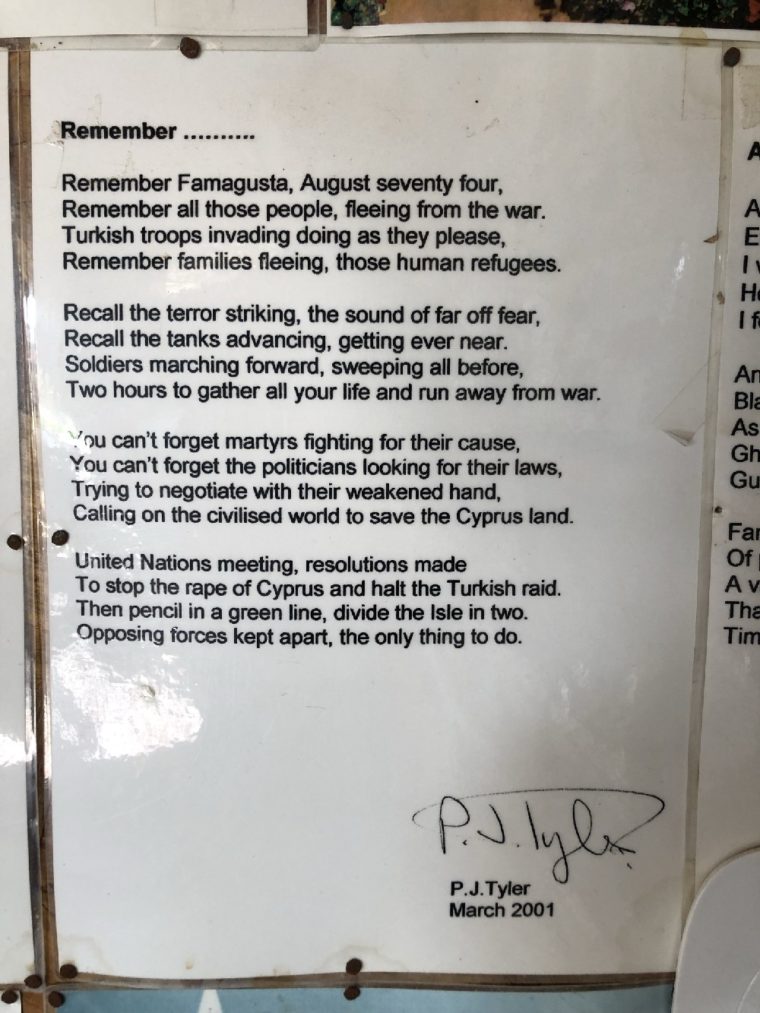 Remember ..........
Remember Famagusta, August seventy four,
Remember all those people, fleeing from the war.
Turkish troops invading doing as they please,
Remember families fleeing, those human refugees.
Recall the terror striking, the sound of far off fear,
Recall the tanks advancing, getting ever near.
Soldiers marching forward, sweeping all before,
Two hours to gather all your life and run away from war.
You can't forget martyrs fighting for their cause,
You can't forget the politicians looking for their laws,
Trying to negotiate with their weakened hand,
Calling on the civilised world to save the Cyprus land.
United Nations meeting, resolutions made
To stop the rape of Cyprus and halt the Turkish raid.
Then pencil in a green line, divide the Isle in two.
Opposing forces kept apart, the only thing to do.
P.J.Tyler
P.J.Tyler
March 2001